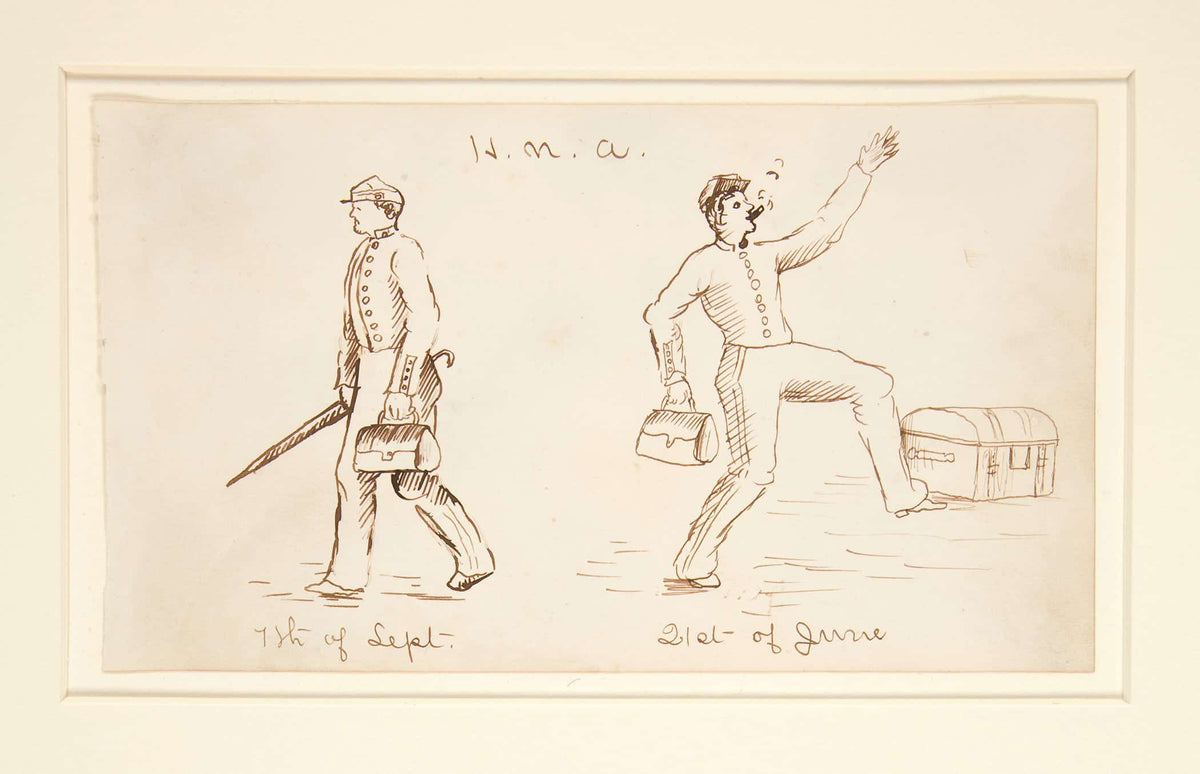 H. M. A.
7th of Sept.
21st of June